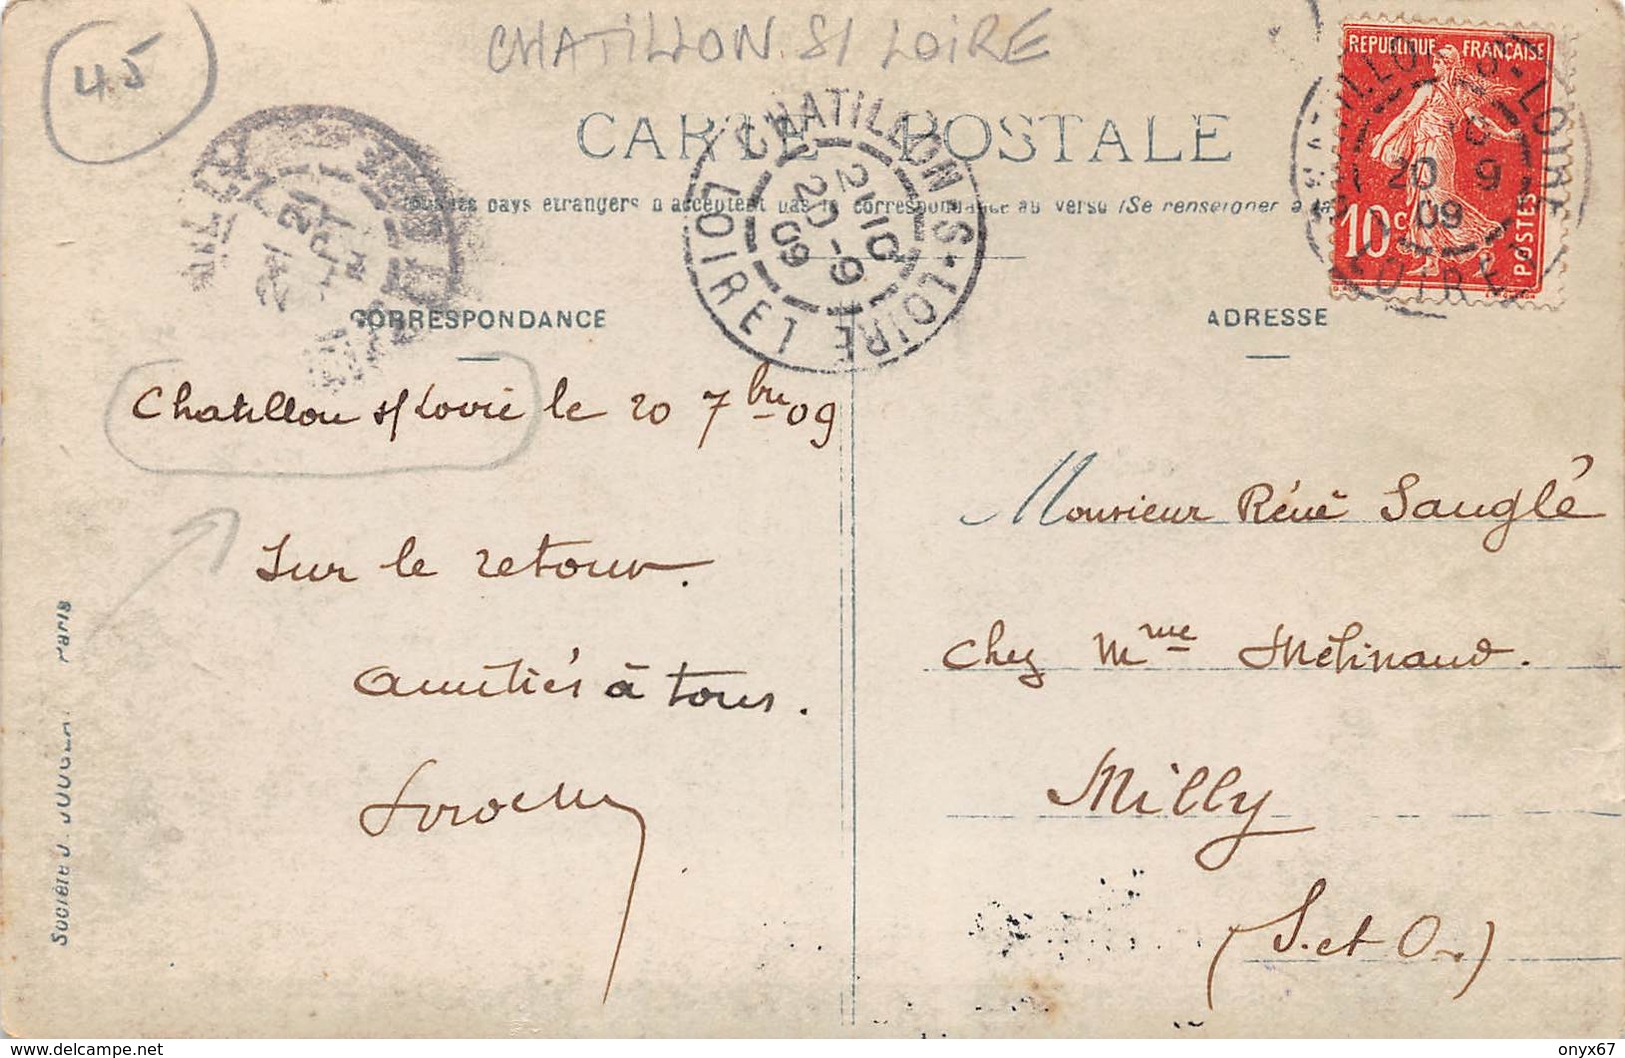 45
CHATILLON S/ LOIRE
CARTE POSTALE
Tous les pays étrangers n'acceptent pas la correspondance au verso (Se renseigner à la
CORRESPONDANCE
ADRESSE
REPUBLIQUE FRANÇAISE
10c
POSTES
CHATILLON-S-LOIRE
21 10
20 -9
09
LOIRET
20 9
09
LOIRET
Chatillon s/ Loire le 20 7bre 09
Sur le retour.
Amitiés à tous.
Monsieur Réné Sauglé
chez Mme Mélinand.
Milly
(S. et O.)
Société J. JOUGLA Paris
onyx67